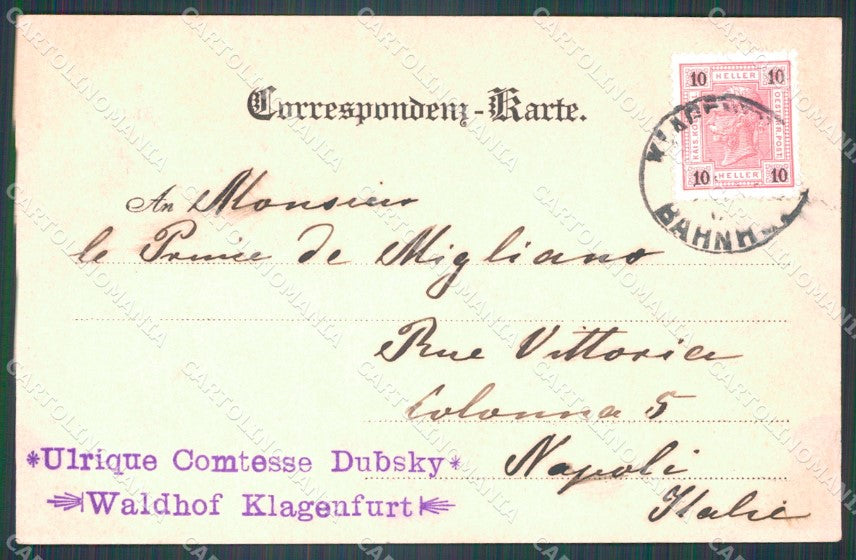 Correspondenz-Karte.
10 HELLER 10
KAIS. KÖNIGL.
OESTERR. POST
10 HELLER 10
BAHNH
An Monsieur
le Prince de Migliano
Rue Vittoria
Colonna 5
Napoli
Italie
*Ulrique Comtesse Dubsky*
Waldhof Klagenfurt
CARTOLINOMANIA